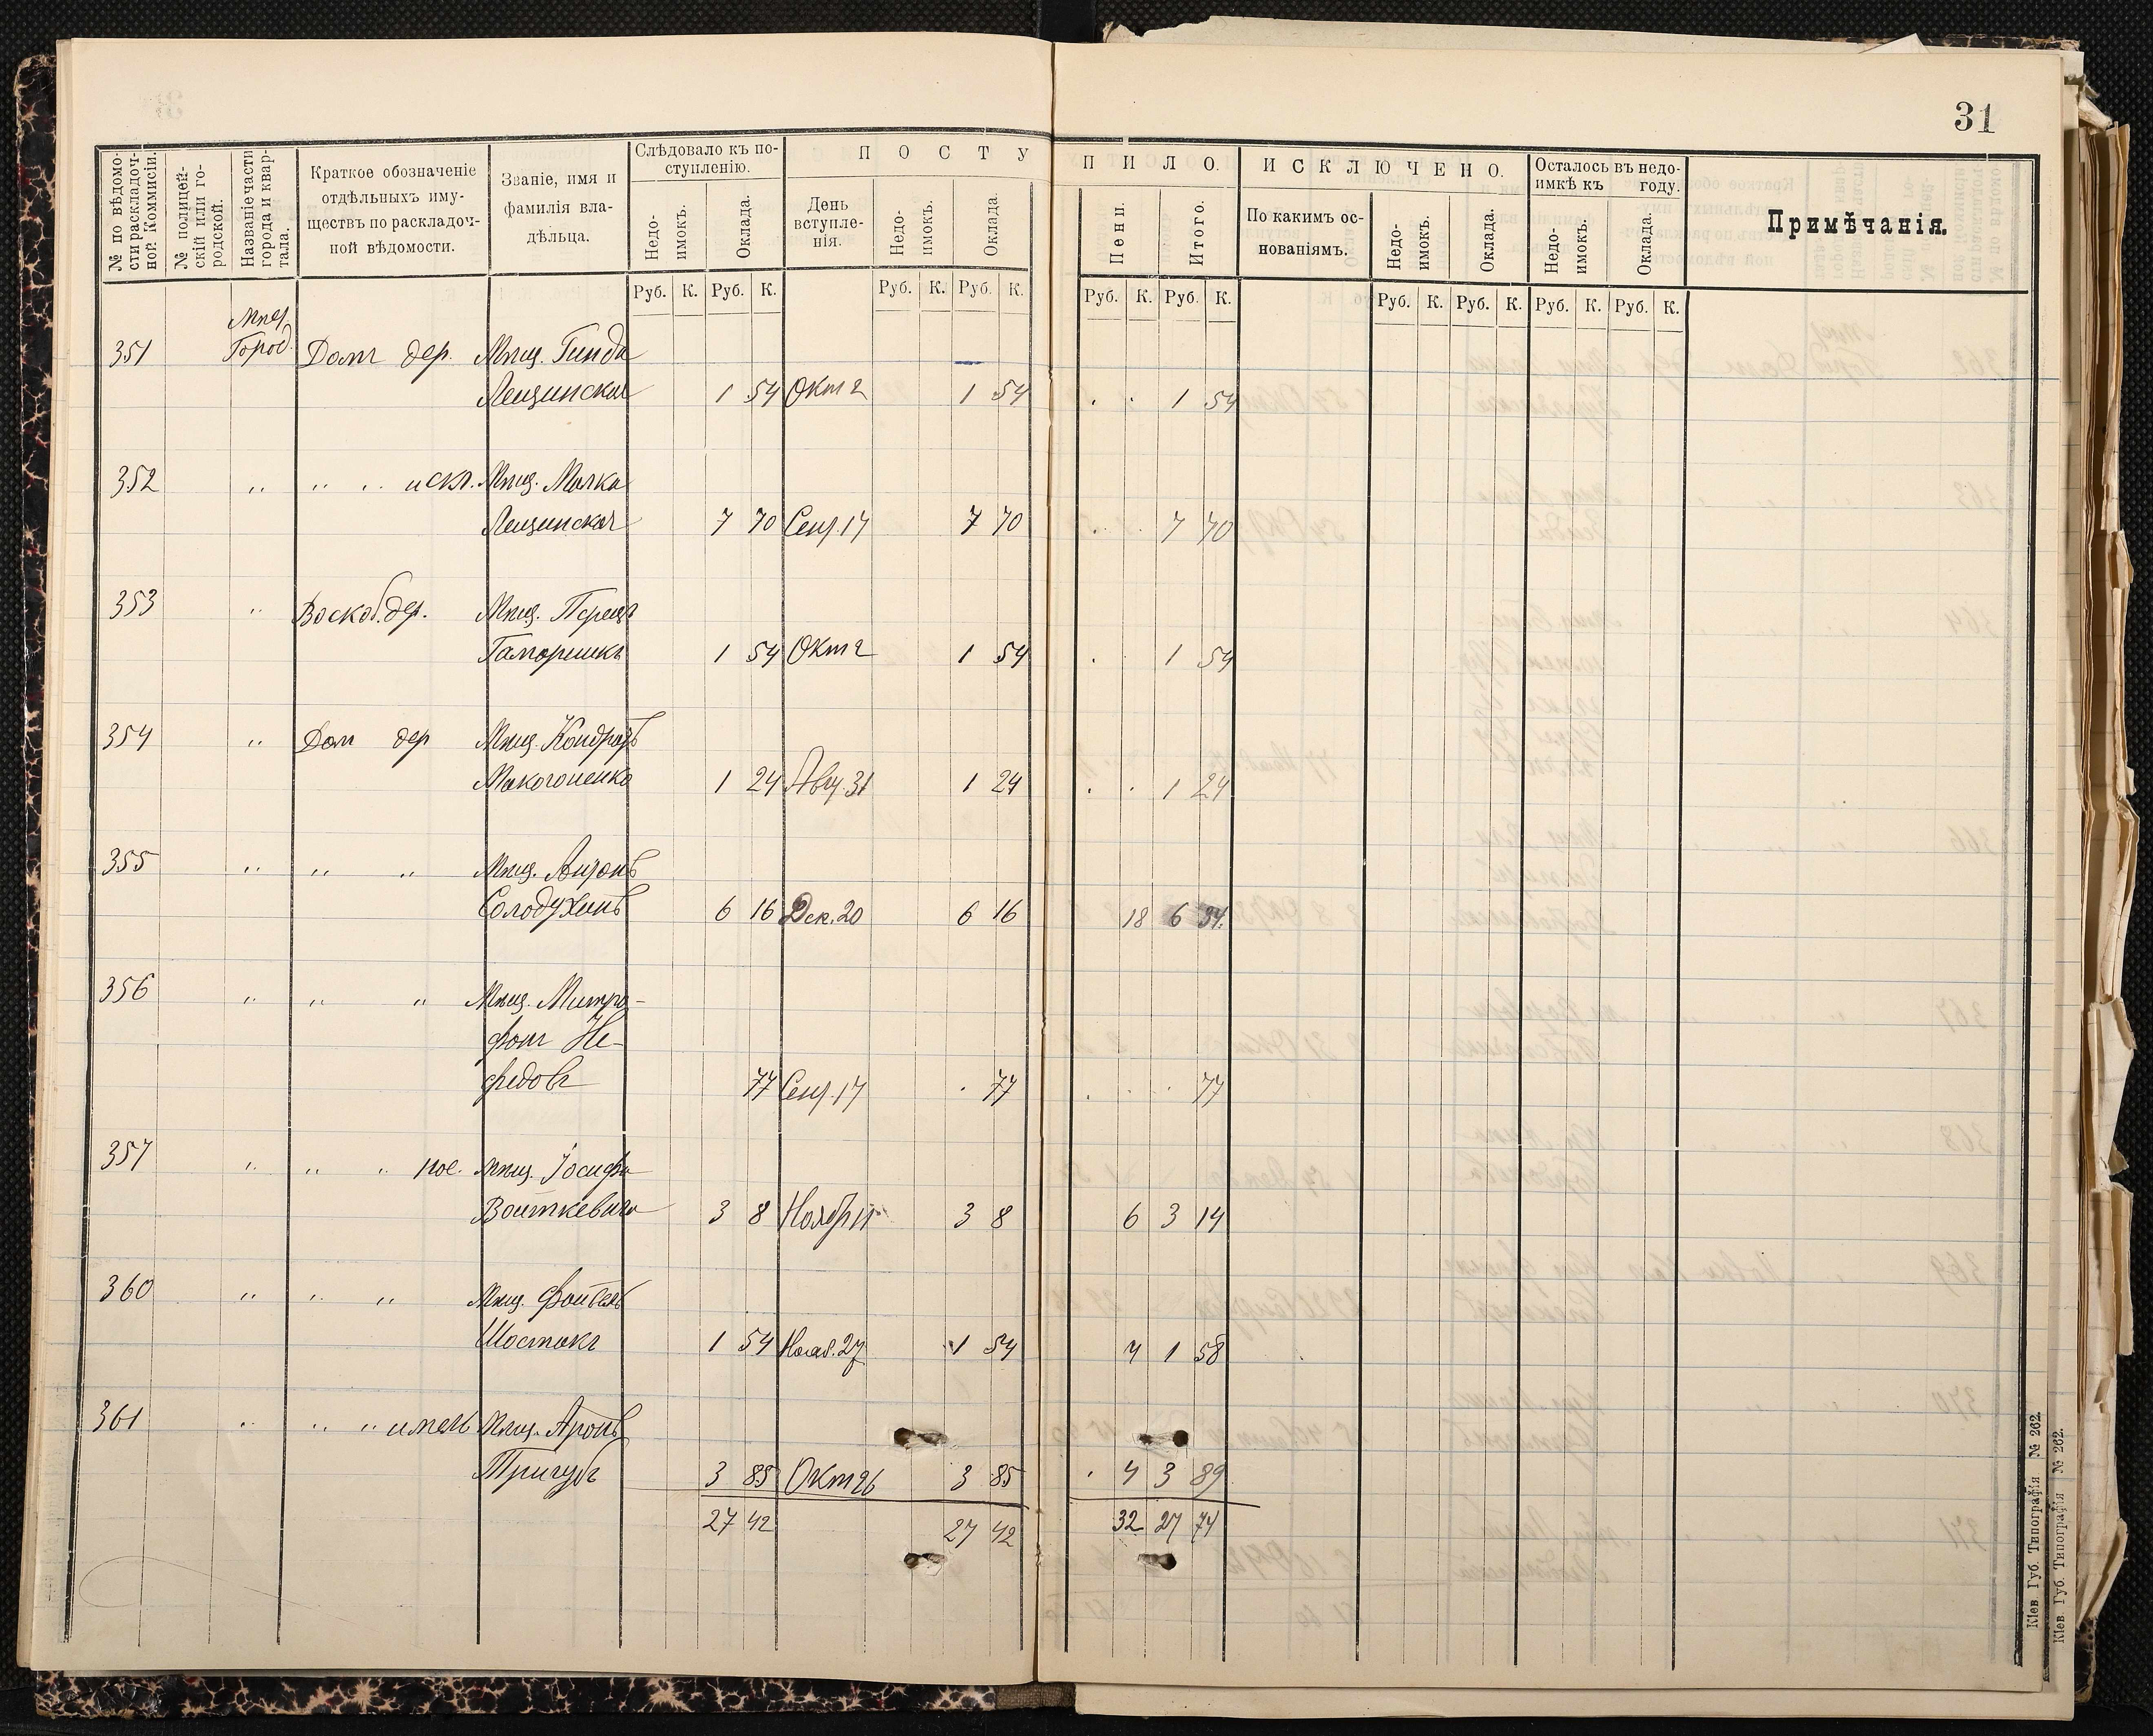 31
№ по вѣдомо-
сти раскладоч-
ной Коммисіи.
№ полицей-
скій или го-
родской.
Названіе части
города и квар-
тала.
Краткое обозначеніе
отдѣльныхъ иму-
ществъ по раскладоч-
ной вѣдомости.
Званіе, имя и
фамилія вла-
дѣльца.
Слѣдовало къ по-
ступленію.
Недо-
имокъ.
Оклада.
ПОСТУ
День
вступле-
нія.
Недо-
имокъ.
Оклада.
ПИЛО.
Пени.
Итого.
ИСКЛЮЧЕНО.
По какимъ ос-
нованіямъ.
Недо-
имокъ.
Оклада.
Осталось въ недо-
имкѣ къ году.
Недо-
имокъ.
Оклада.
Примѣчанія.
Руб. К. Руб. К. Руб. К. Руб. К. Руб. К. Руб. К. Руб. К. Руб. К. Руб. К. Руб. К.
351 Город. Домъ дер. Мѣщ. Гинда
Лещинская 1 54 Окт 2 1 54 . . 1 54
352 " " " и скл. Мѣщ. Малка
Лещинская 7 70 Сент. 17 7 70 . . 7 70
353 " Воскоб. дер. Мѣщ. Перецъ
1 54 Окт 2 1 54 . 1 54
354 " Дом дер Мѣщ. Кондратъ
Макогоненко 1 24 Авг. 31 1 24 . . 1 24
355 " " " Мѣщ. Антонъ
Солодухинъ 6 16 Дек. 20 6 16 18 6 34.
356 " " " Мѣщ. Митро-
фанъ Не-
федовъ 77 Сент. 17 . 77 . . . 77
357 " " " Мѣщ. Іосифъ
Войткевичъ 3 8 Нояб 11 3 8 6 3 14
360 " " " Мѣщ. Файвель
Шостакъ 1 54 Нояб. 27 1 54 4 1 58
361 " " " Мѣщ. Аронъ
Тригубъ 3 85 Окт 26 3 85 . 4 3 89
27 42 27 42 32 27 74
Кіев. Губ. Типографія № 262.
Кіев. Губ. Типографія № 262.